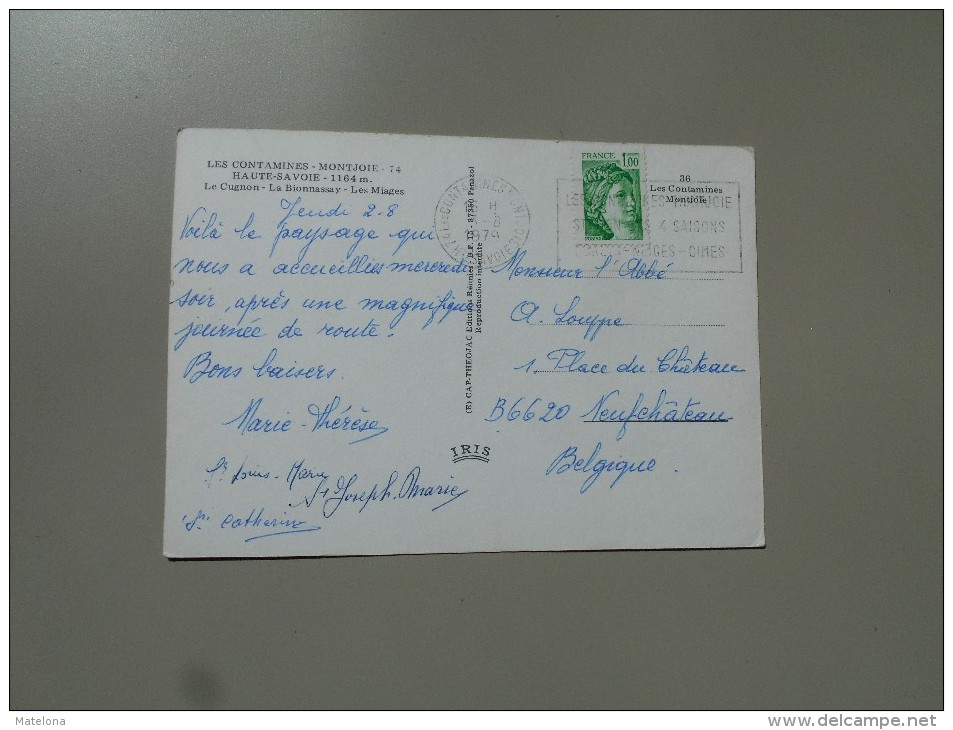 LES CONTAMINES - MONTJOIE - 74
HAUTE-SAVOIE - 1164 m.
Le Cugnon - La Bionnassay - Les Miages
Jeudi 2-8
Voilà le paysage qui
nous a accueillies mercredi
soir, après une magnifique
journée de route.
Bons baisers.
Marie-Thérèse
Sr Louis-Marie
Sr Joseph-Marie
Sr Catherine
(E) CAP-THEOJAC Editions Réunies B.P. 13 - 87350 Panazol
Reproduction interdite
IRIS
FRANCE 1,00
1979
36
Les Contamines
Montjoie
4 SAISONS
CIMES
Monsieur l'Abbé
A. Louppe
1, Place du Château
B6620 Neufchâteau
Belgique.
Matelona
http://www.delcampe.net